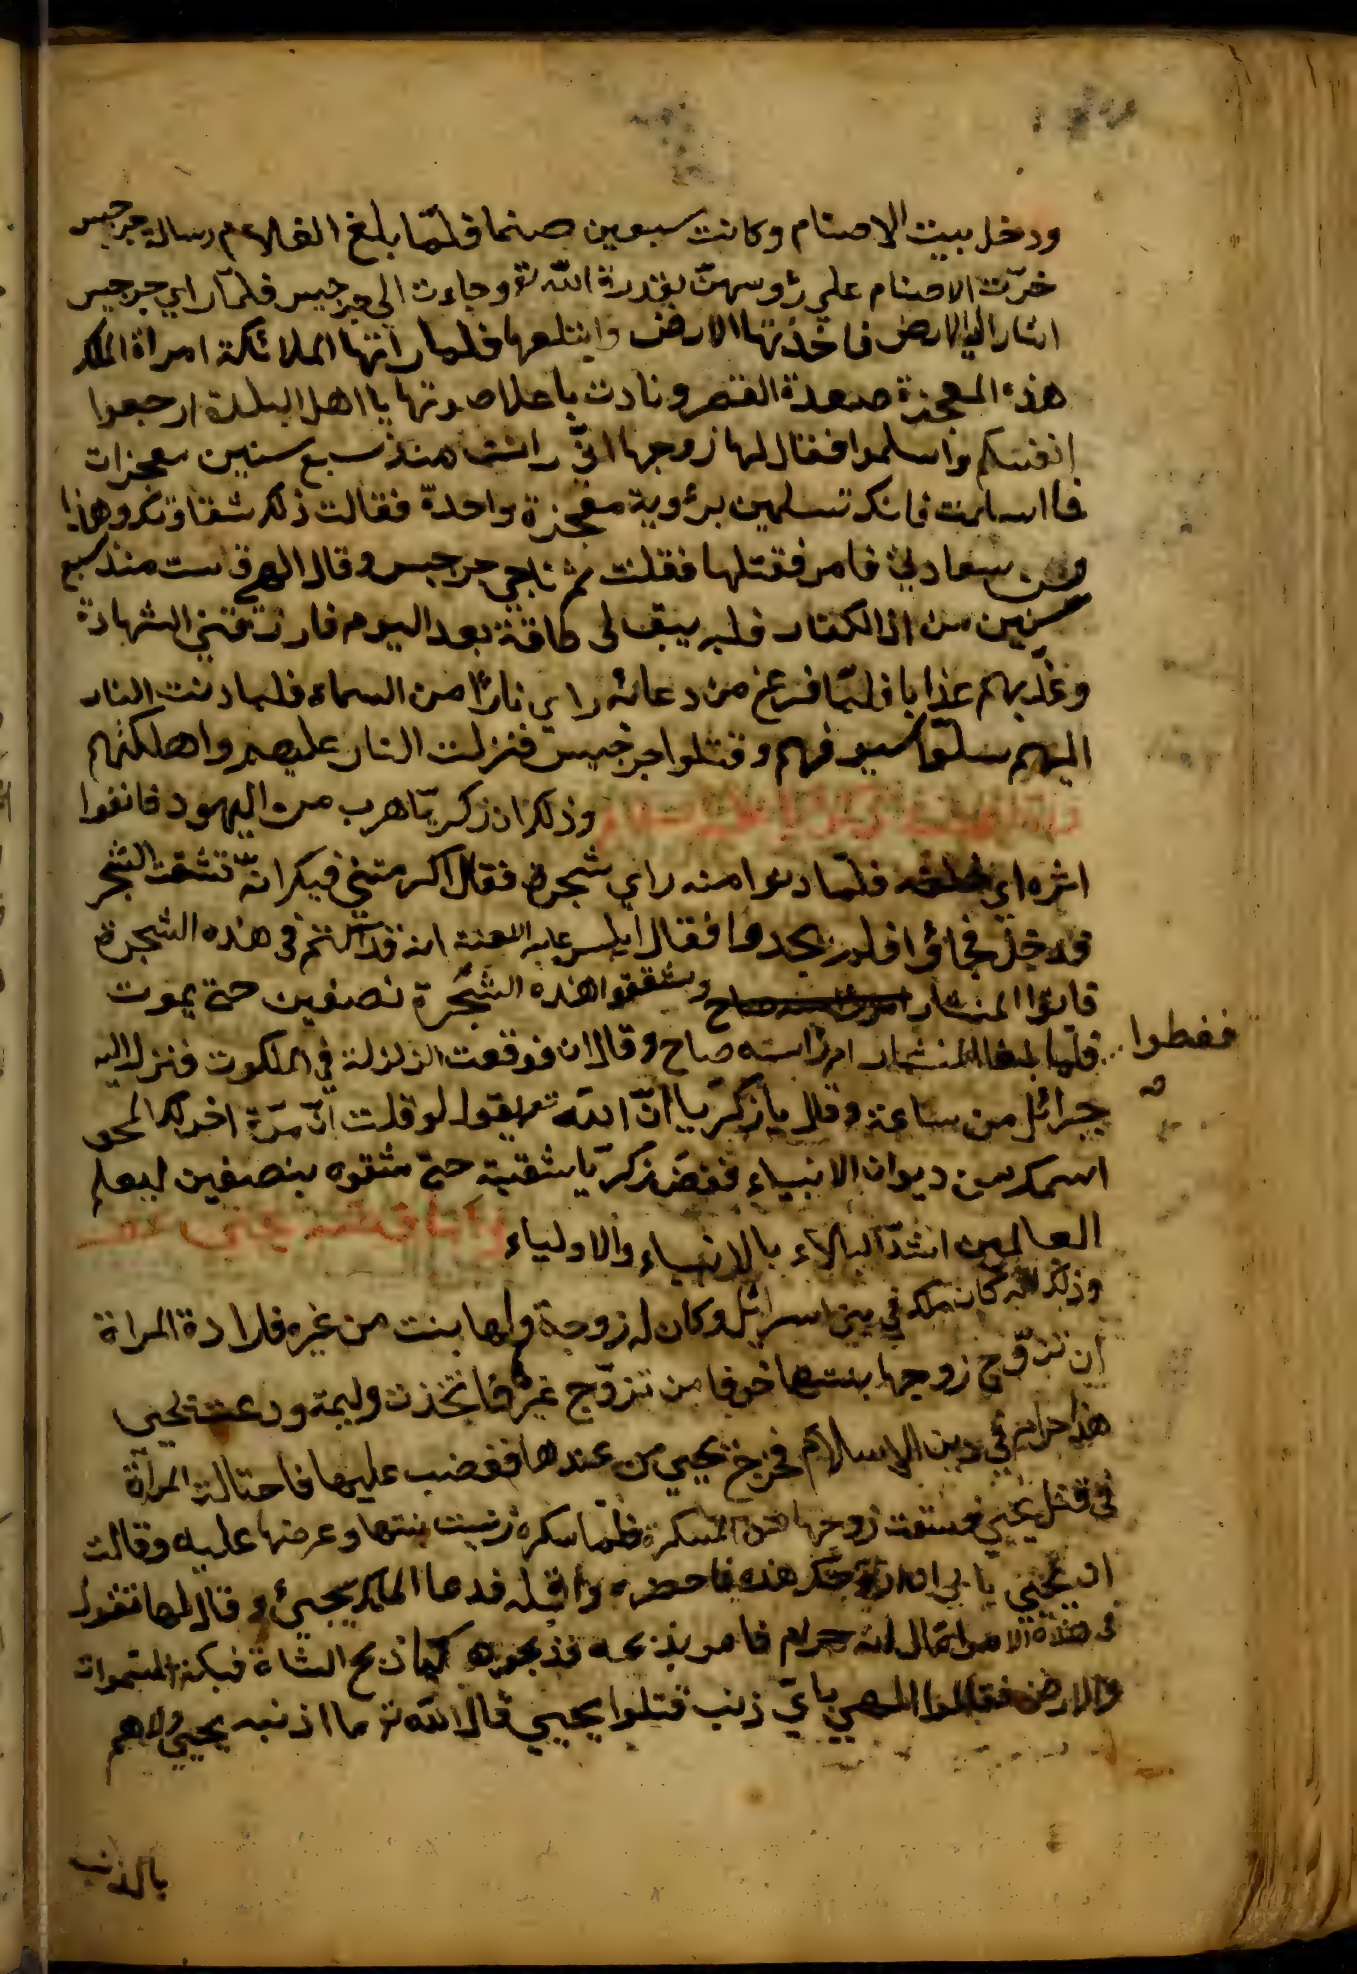 ودخل بيت الاصنام وكانت سبعين صنما فلمّا بلغ الغلام رسالة جرجيس
خرّت الاصنام علي رؤسهنّ بقدرة اللّه تع وجاءت الي جرجيس فلمّا راي جرجيس
اشار الي الارض فاخذتها الارض وابتلعها فلما راتها الملائكة امراة الملك
هذه المعجزة صعدة القصر ونادت باعلا صوتها يا اهل البلدة ارحموا
انفسكم واسلموا فقال لها زوجها انّي رايت منذ سبع سنين معجزات
فما اسلمت فانك تسلمين برؤية معجزة واحدة فقالت ذلك شقاوتك وهذا
من سعادتي فامر فقتلها فقتلت ثم ناجي جرجيس وقال الهي قاسيت منذ سبع
سنين من اذا الكفار فلم يبق لي طاقة بعد اليوم فارزقني الشهادة
وعذّبهم عذابا فلمّا فرغ من دعائه راي نارًا من السماء فلما دنت النار
اليهم سلّوا سيوفهم وقتلوا جرجيس فنزلت النار عليهم واهلكتهم
وذلك ان زكريّا هرب من اليهود فانفوا
اثره اي خلفه فلمّا دنوا منه راي شجرة فقال اكرمتني فيك انّه تشقت الشجر
فدخل فجاؤا فلم يجدوا فقال ابليس عليه اللعنة انه قد اكتتم في هذه الشجرة
فاتوا المنشار وشققوا هذه الشجرة نصفين حتي يموت
ففطوا
فلمّا بلغ المنشار ام راسه صاح وقال ان فوقعت الزلزلة في الملكوت فنزل اليه
جبرائل من ساعة وقال يا زكريّا انّ اللّه تع يقول لو قلت انّ مرّة اخر لك المحي
اسمك من ديوان الانبياء فغضّ زكريّا شفتيه حتي شقوه بنصفين ليعلم
العالمين اشدّ البلاء بالانبياء والاولياء واما قصة يحيي
وذلك انه كان ملك في بني اسرائل وكان له زوجة ولها بنت من غيره فارادة المراة
ان تزوّج زوجها بنتها خوفا من تزوّج غيره فاتخذت وليمة ودعت يحيي
هذا حرام في دين الاسلام فخرج يحيي من عندها فغضب عليها فاحتالت المراة
في قتل يحيي فسقت زوجها من المسكرة فلمّا سكره زينت بنتها وعرضها عليه وقالت
هذه فاحضره واقتله فدعا الملك يحيئ وقال لها تقول
في هذه الامر قال انه حرام فامر بذبحه فذبحوه كما ذبح الشاة فبكت السموات
والارض فقالوا الهي بايّ ذنب قتلوا يحيي قال اللّه تع ما اذنبه يحيي ولاهم
بالذنب